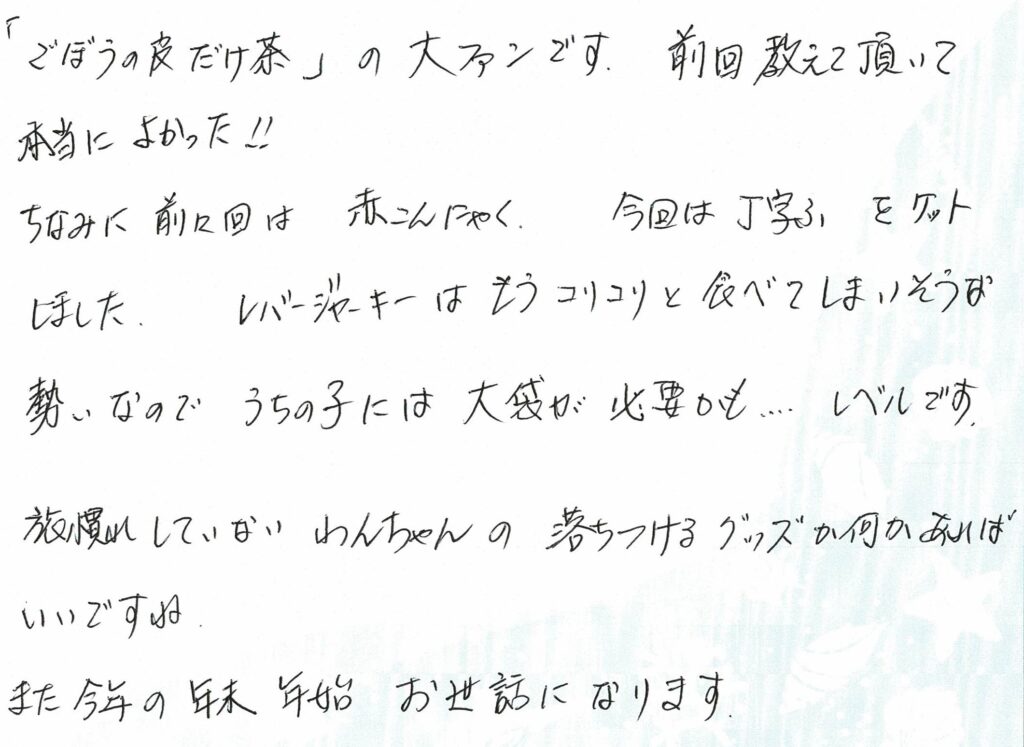 「ごぼうの皮だけ茶」の大ファンです. 前回教えて頂いて
本当によかった!!
ちなみに前々回は 赤こんにゃく. 今回は丁字ふ をゲット
しました. レバージャーキーはもうコリコリと食べてしまいそうな
勢いなので うちの子には大袋が必要かも.... レベルです.
旅慣れしていないわんちゃんの落ちつけるグッズか何かあれば
いいですね.
また今年の年末年始お世話になります.